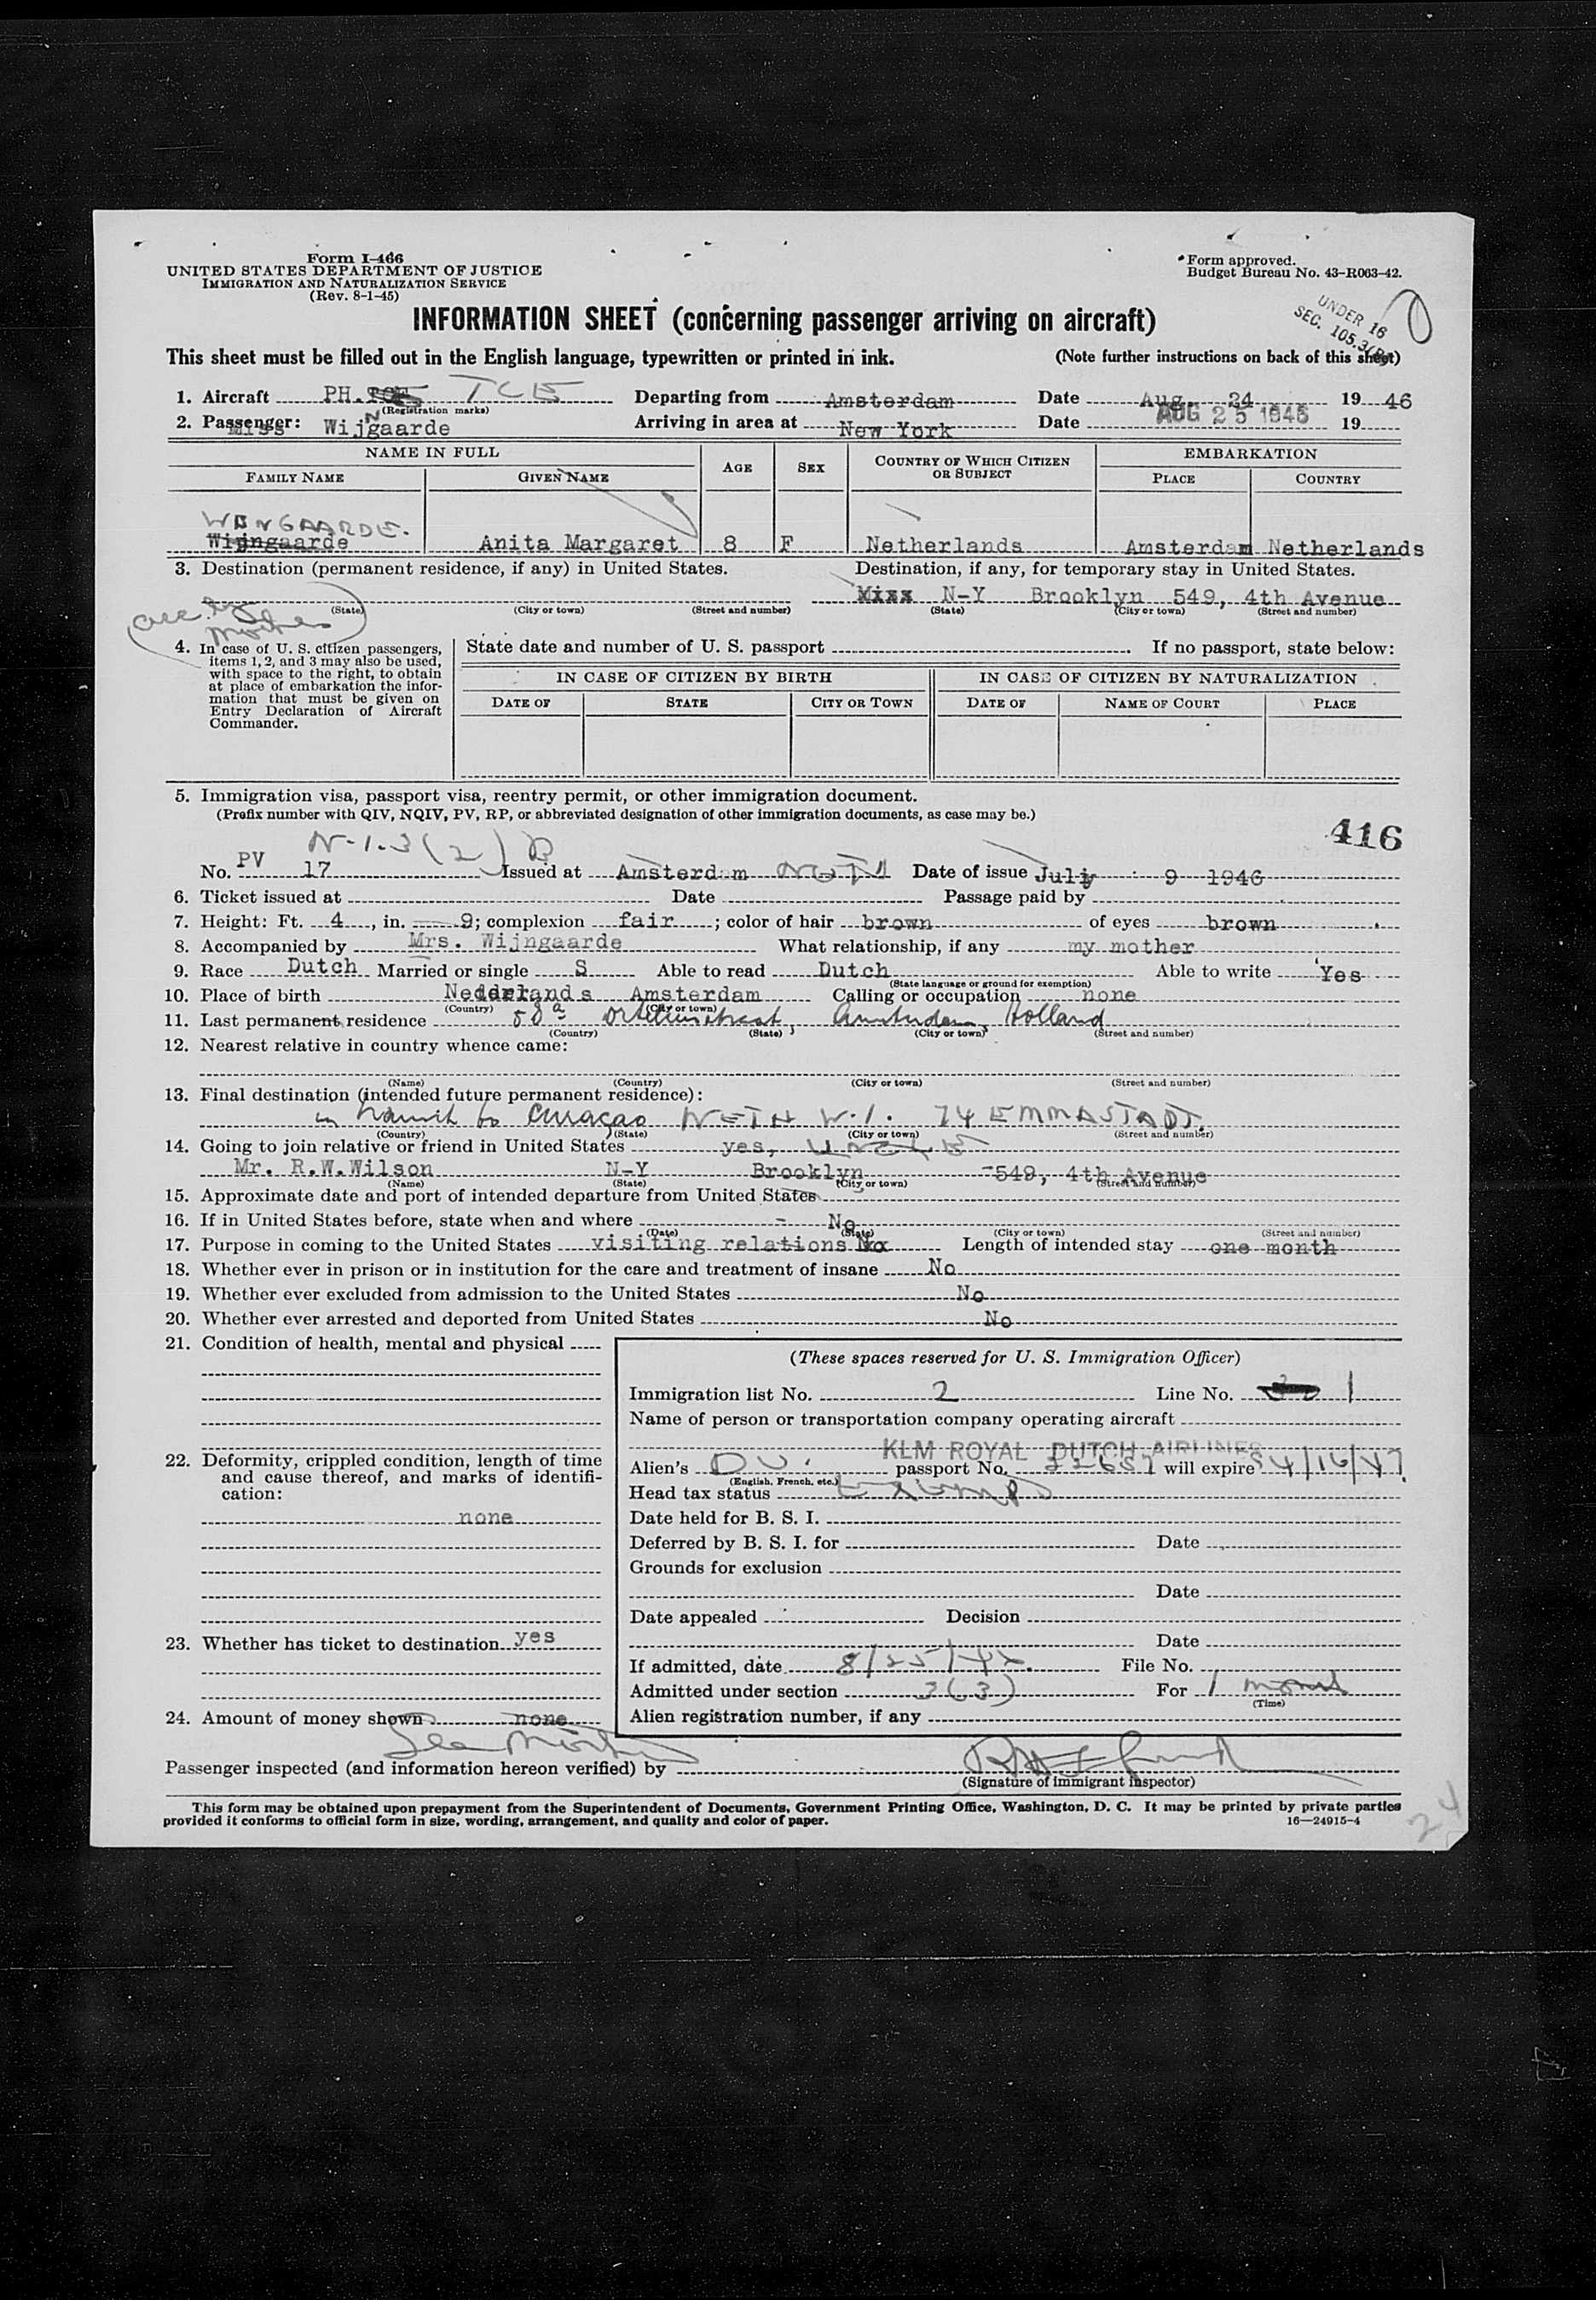 Form I-466
UNITED STATES DEPARTMENT OF JUSTICE
IMMIGRATION AND NATURALIZATION SERVICE
(Rev. 8-1-45)
Form approved.
Budget Bureau No. 43-R063-42.
INFORMATION SHEET (concerning passenger arriving on aircraft)
UNDER 16
SEC. 105.3
This sheet must be filled out in the English language, typewritten or printed in ink. (Note further instructions on back of this sheet)
1. Aircraft PH. TCE Departing from Amsterdam Date Aug. 24 1946
(Registration marks)
2. Passenger: Miss Wijngaarde Arriving in area at New York Date AUG 25 1946 19
NAME IN FULL AGE SEX COUNTRY OF WHICH CITIZEN OR SUBJECT EMBARKATION
FAMILY NAME GIVEN NAME PLACE COUNTRY
Wijngaarde Anita Margaret 8 F Netherlands Amsterdam Netherlands
3. Destination (permanent residence, if any) in United States. Destination, if any, for temporary stay in United States.
N-Y Brooklyn 549, 4th Avenue
(State) (City or town) (Street and number) (State) (City or town) (Street and number)
mother
4. In case of U. S. citizen passengers, items 1, 2, and 3 may also be used, with space to the right, to obtain at place of embarkation the information that must be given on Entry Declaration of Aircraft Commander.
State date and number of U. S. passport If no passport, state below:
IN CASE OF CITIZEN BY BIRTH IN CASE OF CITIZEN BY NATURALIZATION
DATE OF STATE CITY OR TOWN DATE OF NAME OF COURT PLACE
5. Immigration visa, passport visa, reentry permit, or other immigration document.
(Prefix number with QIV, NQIV, PV, RP, or abbreviated designation of other immigration documents, as case may be.)
416
N-1.3(2)B
No. PV 17 Issued at Amsterdam NETH Date of issue July 9 1946
6. Ticket issued at Date Passage paid by
7. Height: Ft. 4, in. 9; complexion fair; color of hair brown of eyes brown
8. Accompanied by Mrs. Wijngaarde What relationship, if any my mother
9. Race Dutch Married or single S Able to read Dutch Able to write Yes
(State language or ground for exemption)
10. Place of birth Nederlands Amsterdam Calling or occupation none
(Country) (City or town)
11. Last permanent residence 58a Orteliusstraat, Amsterdam, Holland
(Country) (State) (City or town) (Street and number)
12. Nearest relative in country whence came:
(Name) (Country) (City or town) (Street and number)
13. Final destination (intended future permanent residence):
in transit to Curaçao NETH W.I. 74 EMMASTADT.
(Country) (State) (City or town) (Street and number)
14. Going to join relative or friend in United States yes, UNCLE
Mr. R.W.Wilson N-Y Brooklyn -549, 4th Avenue
(Name) (State) (City or town) (Street and number)
15. Approximate date and port of intended departure from United States
16. If in United States before, state when and where - No
(Date) (State) (City or town) (Street and number)
17. Purpose in coming to the United States visiting relations Length of intended stay one month
18. Whether ever in prison or in institution for the care and treatment of insane No
19. Whether ever excluded from admission to the United States No
20. Whether ever arrested and deported from United States No
21. Condition of health, mental and physical
22. Deformity, crippled condition, length of time and cause thereof, and marks of identification:
none
23. Whether has ticket to destination yes
24. Amount of money shown none
See Mother
(These spaces reserved for U. S. Immigration Officer)
Immigration list No. 2 Line No. 1
Name of person or transportation company operating aircraft
KLM ROYAL DUTCH AIRLINES
Alien's DU. passport No. 22657 will expire 4/16/47.
(English, French, etc.)
Head tax status Exempt
Date held for B. S. I.
Deferred by B. S. I. for Date
Grounds for exclusion
Date
Date appealed Decision
Date
If admitted, date 8/25/46 File No.
Admitted under section 3(3) For 1 month
(Time)
Alien registration number, if any
Passenger inspected (and information hereon verified) by
(Signature of immigrant inspector)
This form may be obtained upon prepayment from the Superintendent of Documents, Government Printing Office, Washington, D. C. It may be printed by private parties
provided it conforms to official form in size, wording, arrangement, and quality and color of paper. 16—24915-4
24